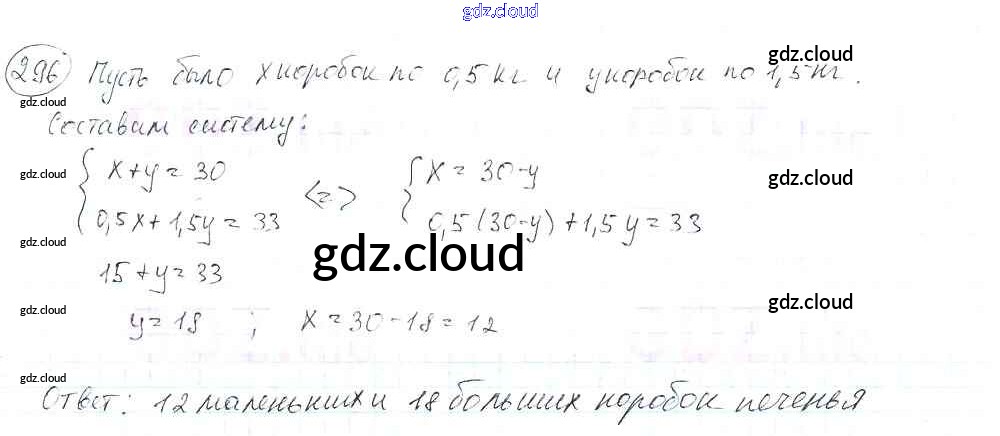 gdz.cloud
296 Пусть было x коробок по 0,5 кг и y коробок по 1,5 кг.
gdz.cloud
gdz.cloud
Составим систему:
{ x+y=30 <=> { x = 30-y
gdz.cloud
gdz.cloud
0,5x+1,5y=33 0,5(30-y)+1,5y=33
gdz.cloud
gdz.cloud
15+y=33
gdz.cloud
gdz.cloud
y=18 ; x=30-18=12
gdz.cloud
Ответ: 12 маленьких и 18 больших коробок печенья